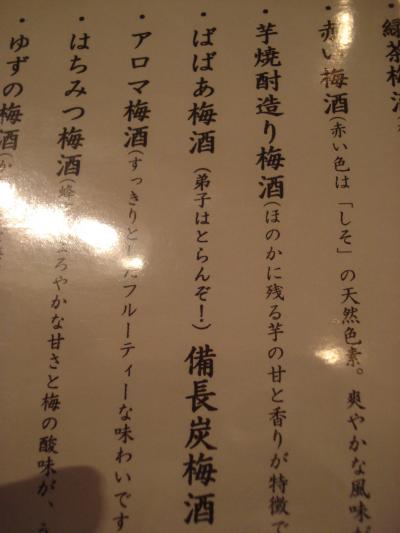 ・緑茶梅酒
・赤い梅酒(赤い色は「しそ」の天然色素。爽やかな風味が
・芋焼酎造り梅酒(ほのかに残る芋の甘と香りが特徴で
・ばばあ梅酒(弟子はとらんぞ!)備長炭梅酒
・アロマ梅酒(すっきりとしたフルーティーな味わいです
・はちみつ梅酒(蜂 まろやかな甘さと梅の酸味が、
・ゆずの梅酒(か